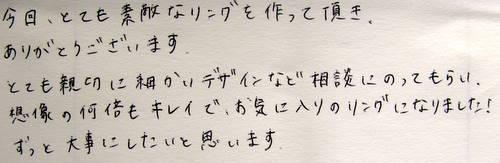 今回、とても素敵なリングを作って頂き、
ありがとうございます.
とても親切に細かいデザインなど相談にのってもらい、
想像の何倍もキレイで、お気に入りのリングになりました!
ずっと大事にしたいと思います.